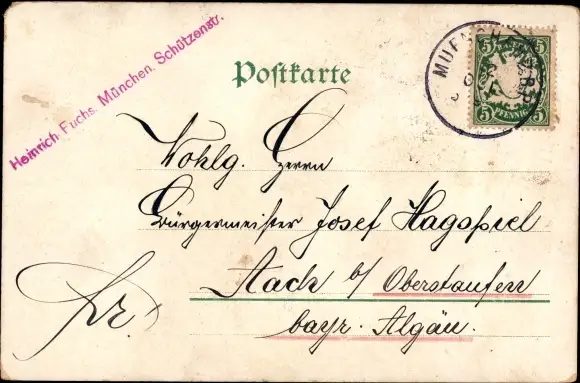 Heinrich Fuchs. München. Schützenstr.
Postkarte
5 5
PFENNIG
5 5
Wohlg. Herrn
Bürgermeister Josef Hagspiel
Aach b/ Oberstaufen
bayr. Algäu.
Fr.